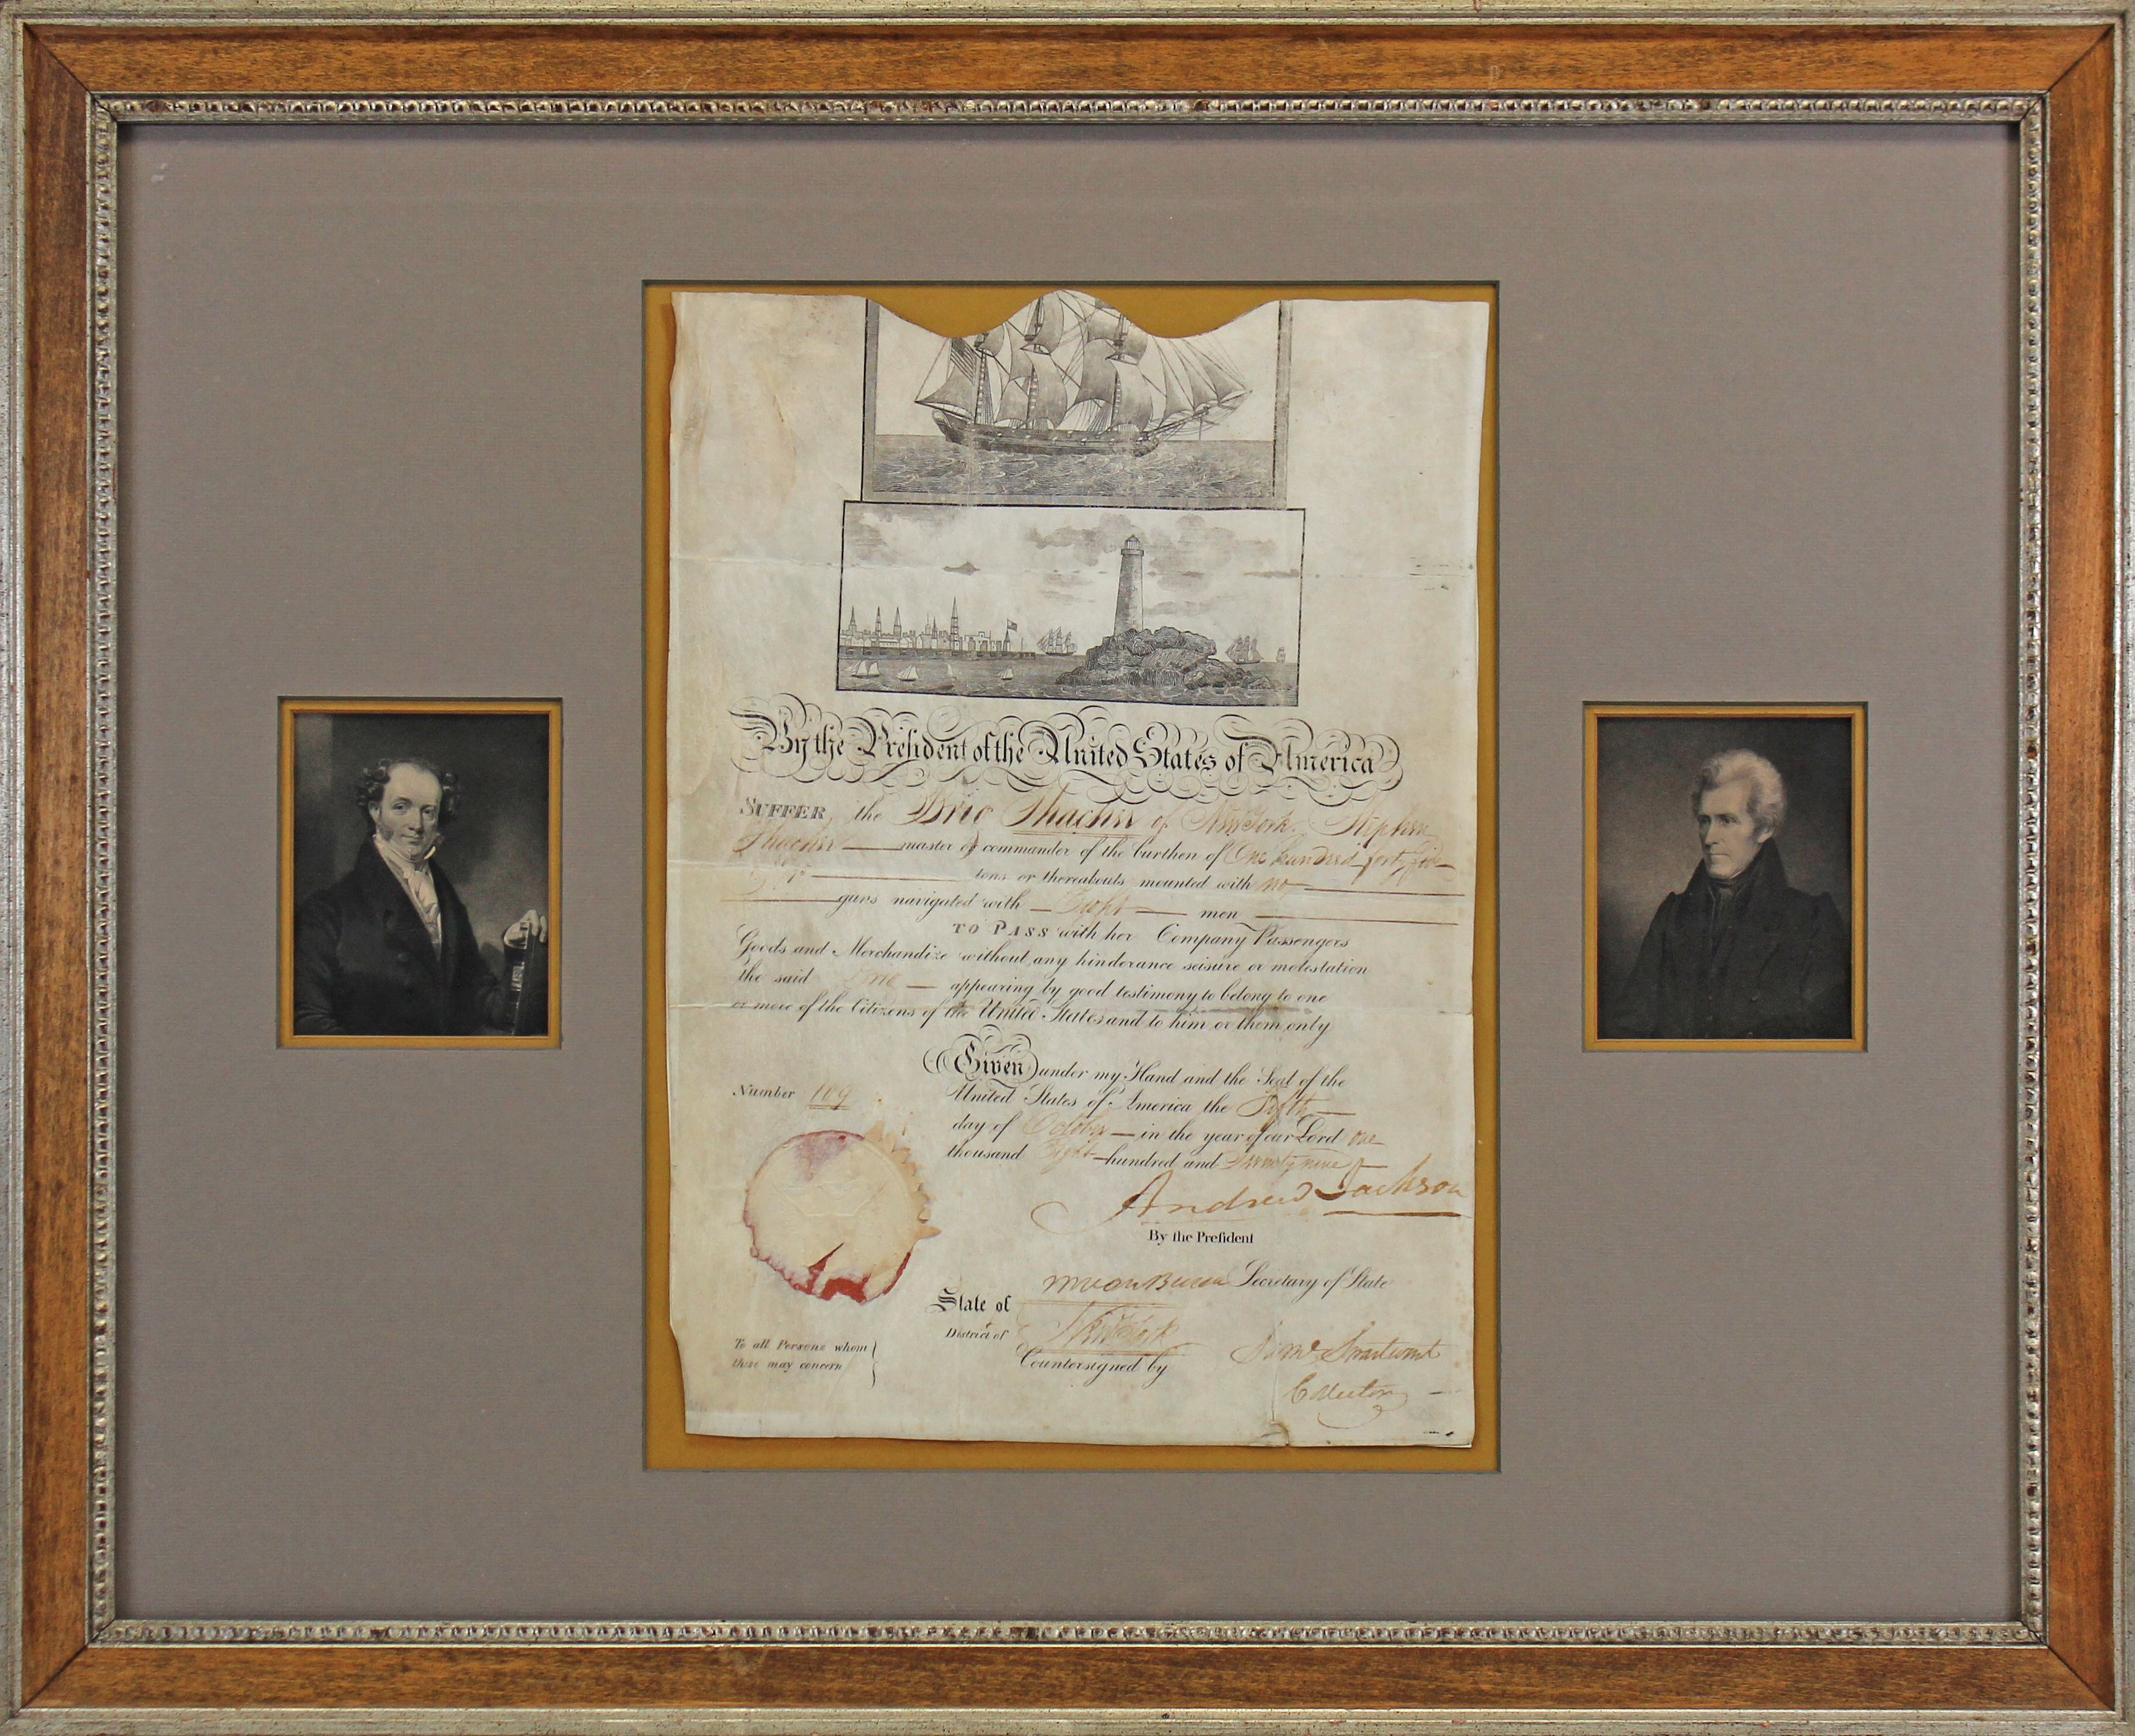 By the President of the United States of America
SUFFER, the Brig Thacher of New York, Stephen
Thacher master or commander of the burthen of One hundred forty five
tons or thereabouts mounted with no
guns navigated with Eight men
TO PASS with her Company Passengers
Goods and Merchandize without any hinderance seisure or molestation
the said Brig appearing by good testimony to belong to one
or more of the Citizens of the United States and to him or them only
Given under my Hand and the Seal of the
Number 109
United States of America the Fifth
day of October in the year of our Lord one
thousand Eight hundred and Twenty nine
Andrew Jackson
By the Preſident
M Van Buren Secretary of State
State of
District of New York
Countersigned by
Saml Swartwout
Collector
To all Persons whom
these may concern